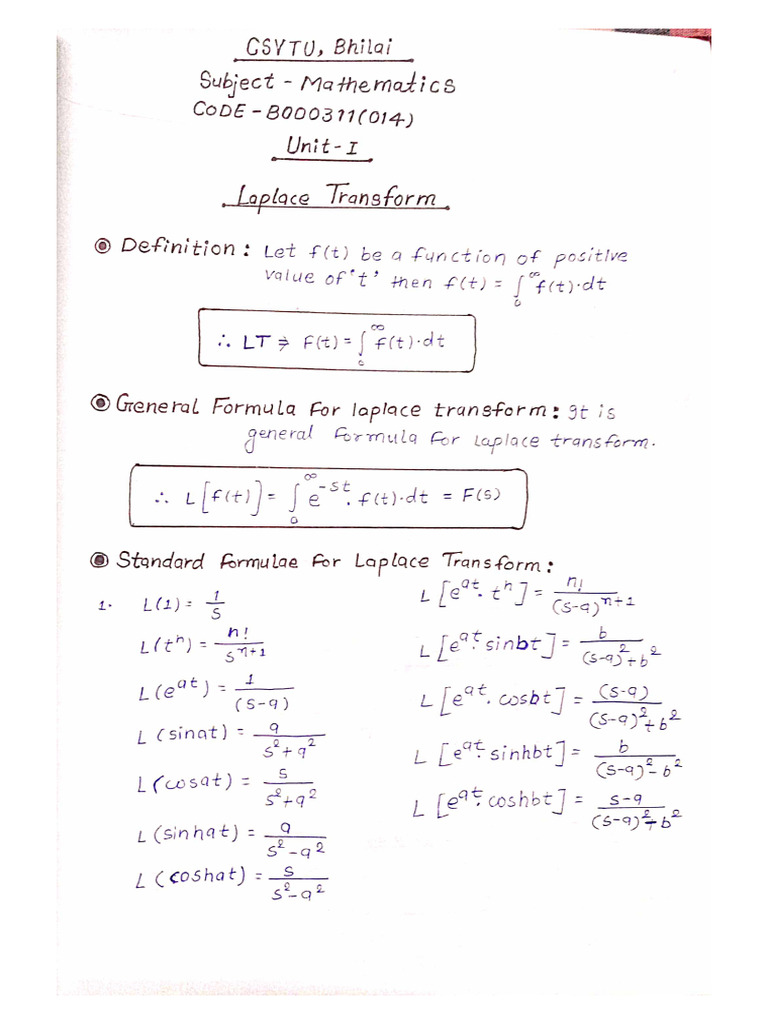 CSVTU, Bhilai
Subject - Mathematics
CODE - B000311(014)
Unit - I
Laplace Transform
Definition : Let f(t) be a function of positive
value of 't' then f(t) = ∫₀^∞ f(t)·dt
∴ LT ⇒ F(t) = ∫₀^∞ f(t)·dt
General Formula For laplace transform : It is
general formula for laplace transform.
∴ L[f(t)] = ∫₀^∞ e^-st · f(t)·dt = F(s)
Standard formulae for Laplace Transform :
1. L(1) = 1/s
L(t^n) = n!/s^n+1
L(e^at) = 1/(s-a)
L(sinat) = a/s²+a²
L(cosat) = s/s²+a²
L(sinhat) = a/s²-a²
L(coshat) = s/s²-a²
L[e^at · t^n] = n!/(s-a)^n+1
L[e^at · sinbt] = b/(s-a)²+b²
L[e^at · cosbt] = (s-a)/(s-a)²+b²
L[e^at · sinhbt] = b/(s-a)²-b²
L[e^at · coshbt] = s-a/(s-a)²+b²